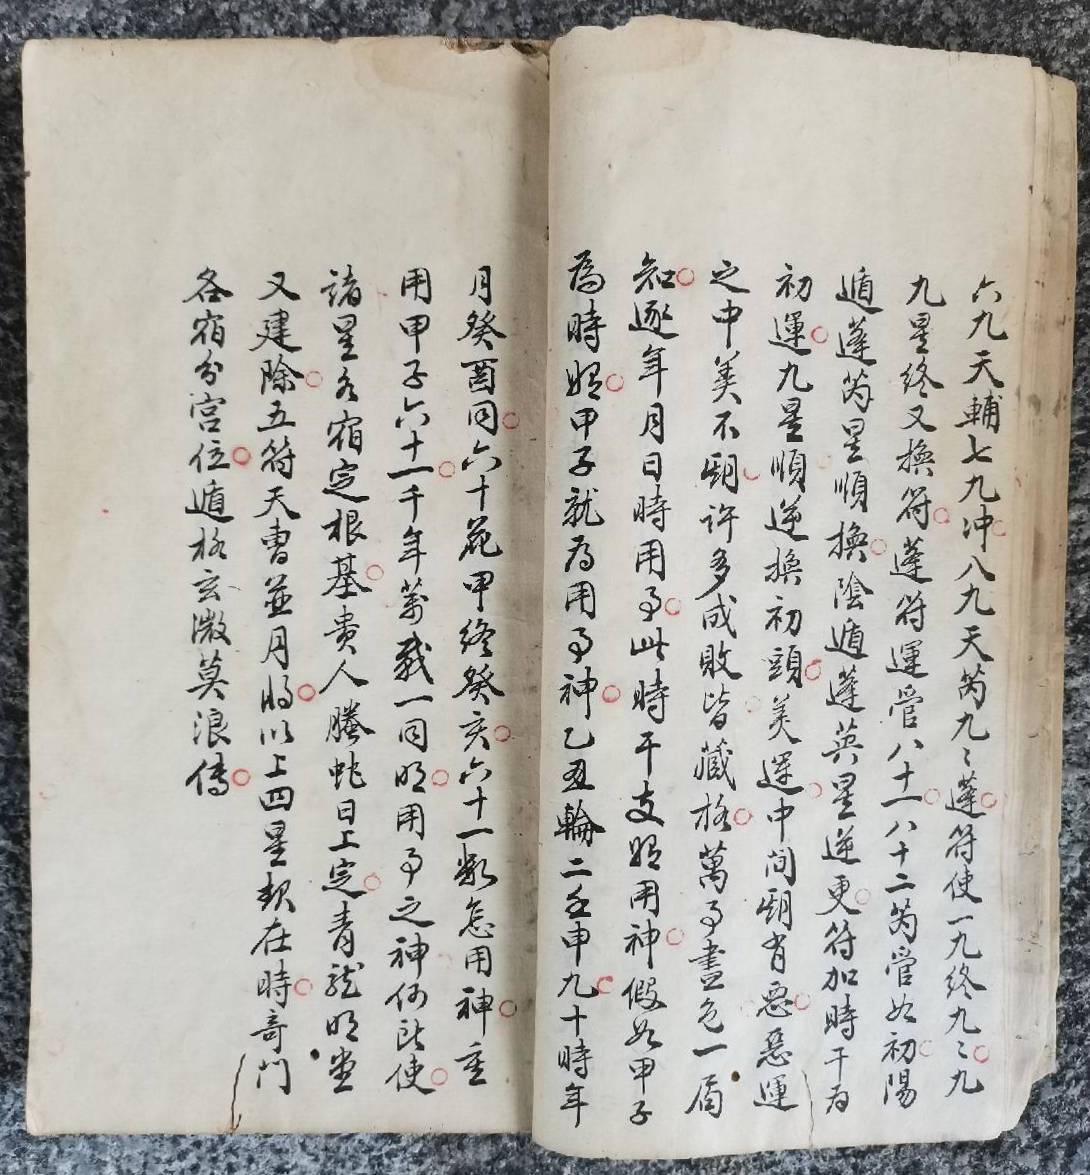 六九天輔七九冲八九天芮九〻蓬符使一九終九〻九
九星終又換符蓬符運管八十一八十二芮管如初陽
遁蓬芮星順換陰遁蓬英星逆更符加時干为
初運九星順逆換初頭美運中间有惡惡運
之中美不許多成敗皆藏格萬事盡包一局
知逐年月日時用事此時干支用神假如甲子
為時甲子就为用事神乙丑輪二壬申九十時年
月癸酉同六十花甲終癸亥六十一数怎用神重
用甲子六十一千年萬載一同明用事之神仍此使
諸星各宿定根基贵人螣蛇日上定青龙明堂
又建除五符天曹並月将以上四星在時奇门
各宿分宫位遁格玄微莫浪傳